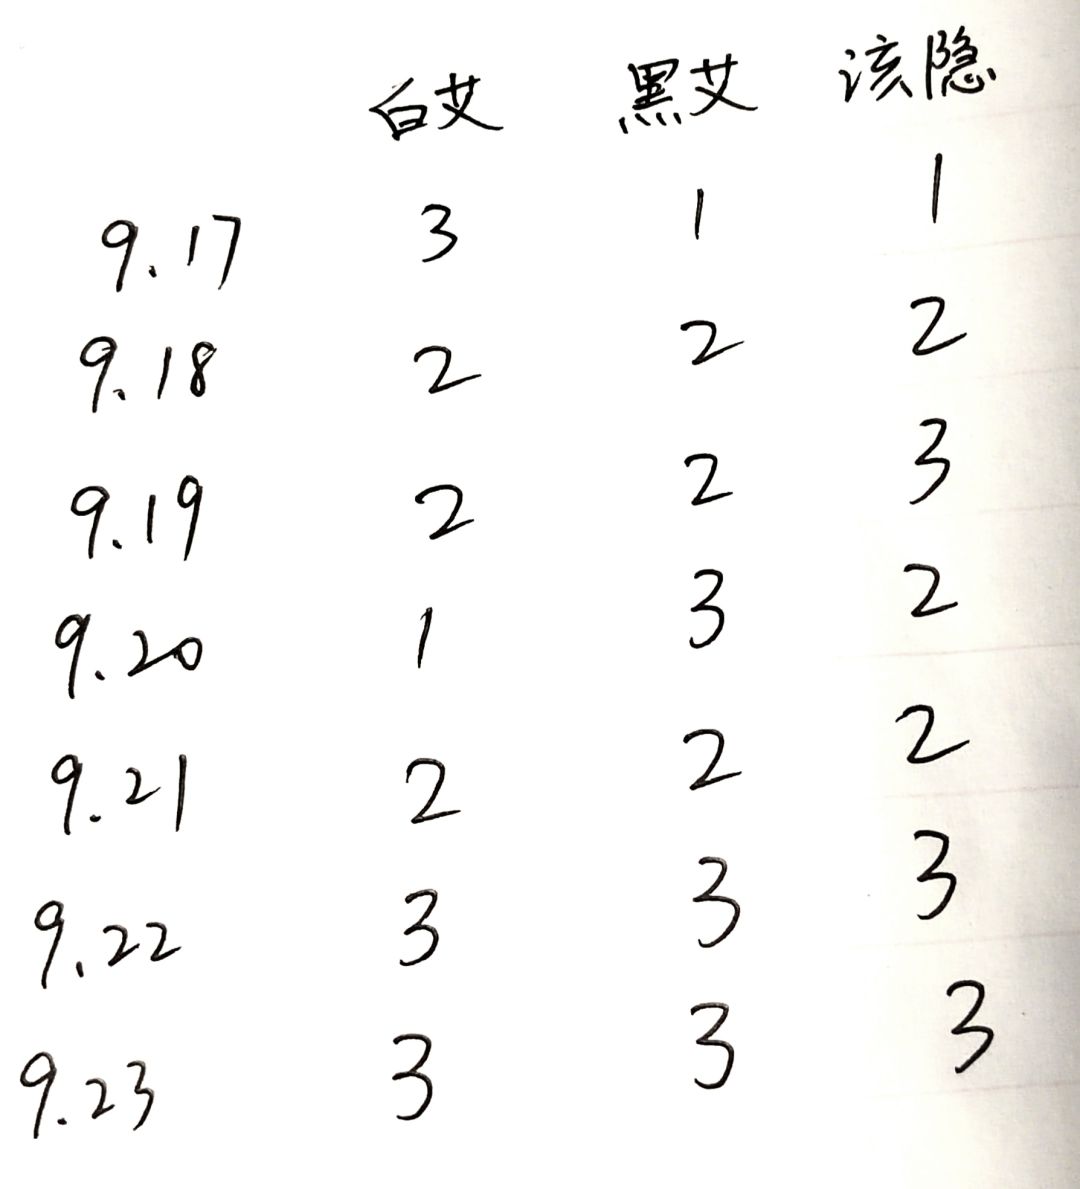 白艾 黑艾 该隐
9.17 3 1 1
9.18 2 2 2
9.19 2 2 3
9.20 1 3 2
9.21 2 2 2
9.22 3 3 3
9.23 3 3 3